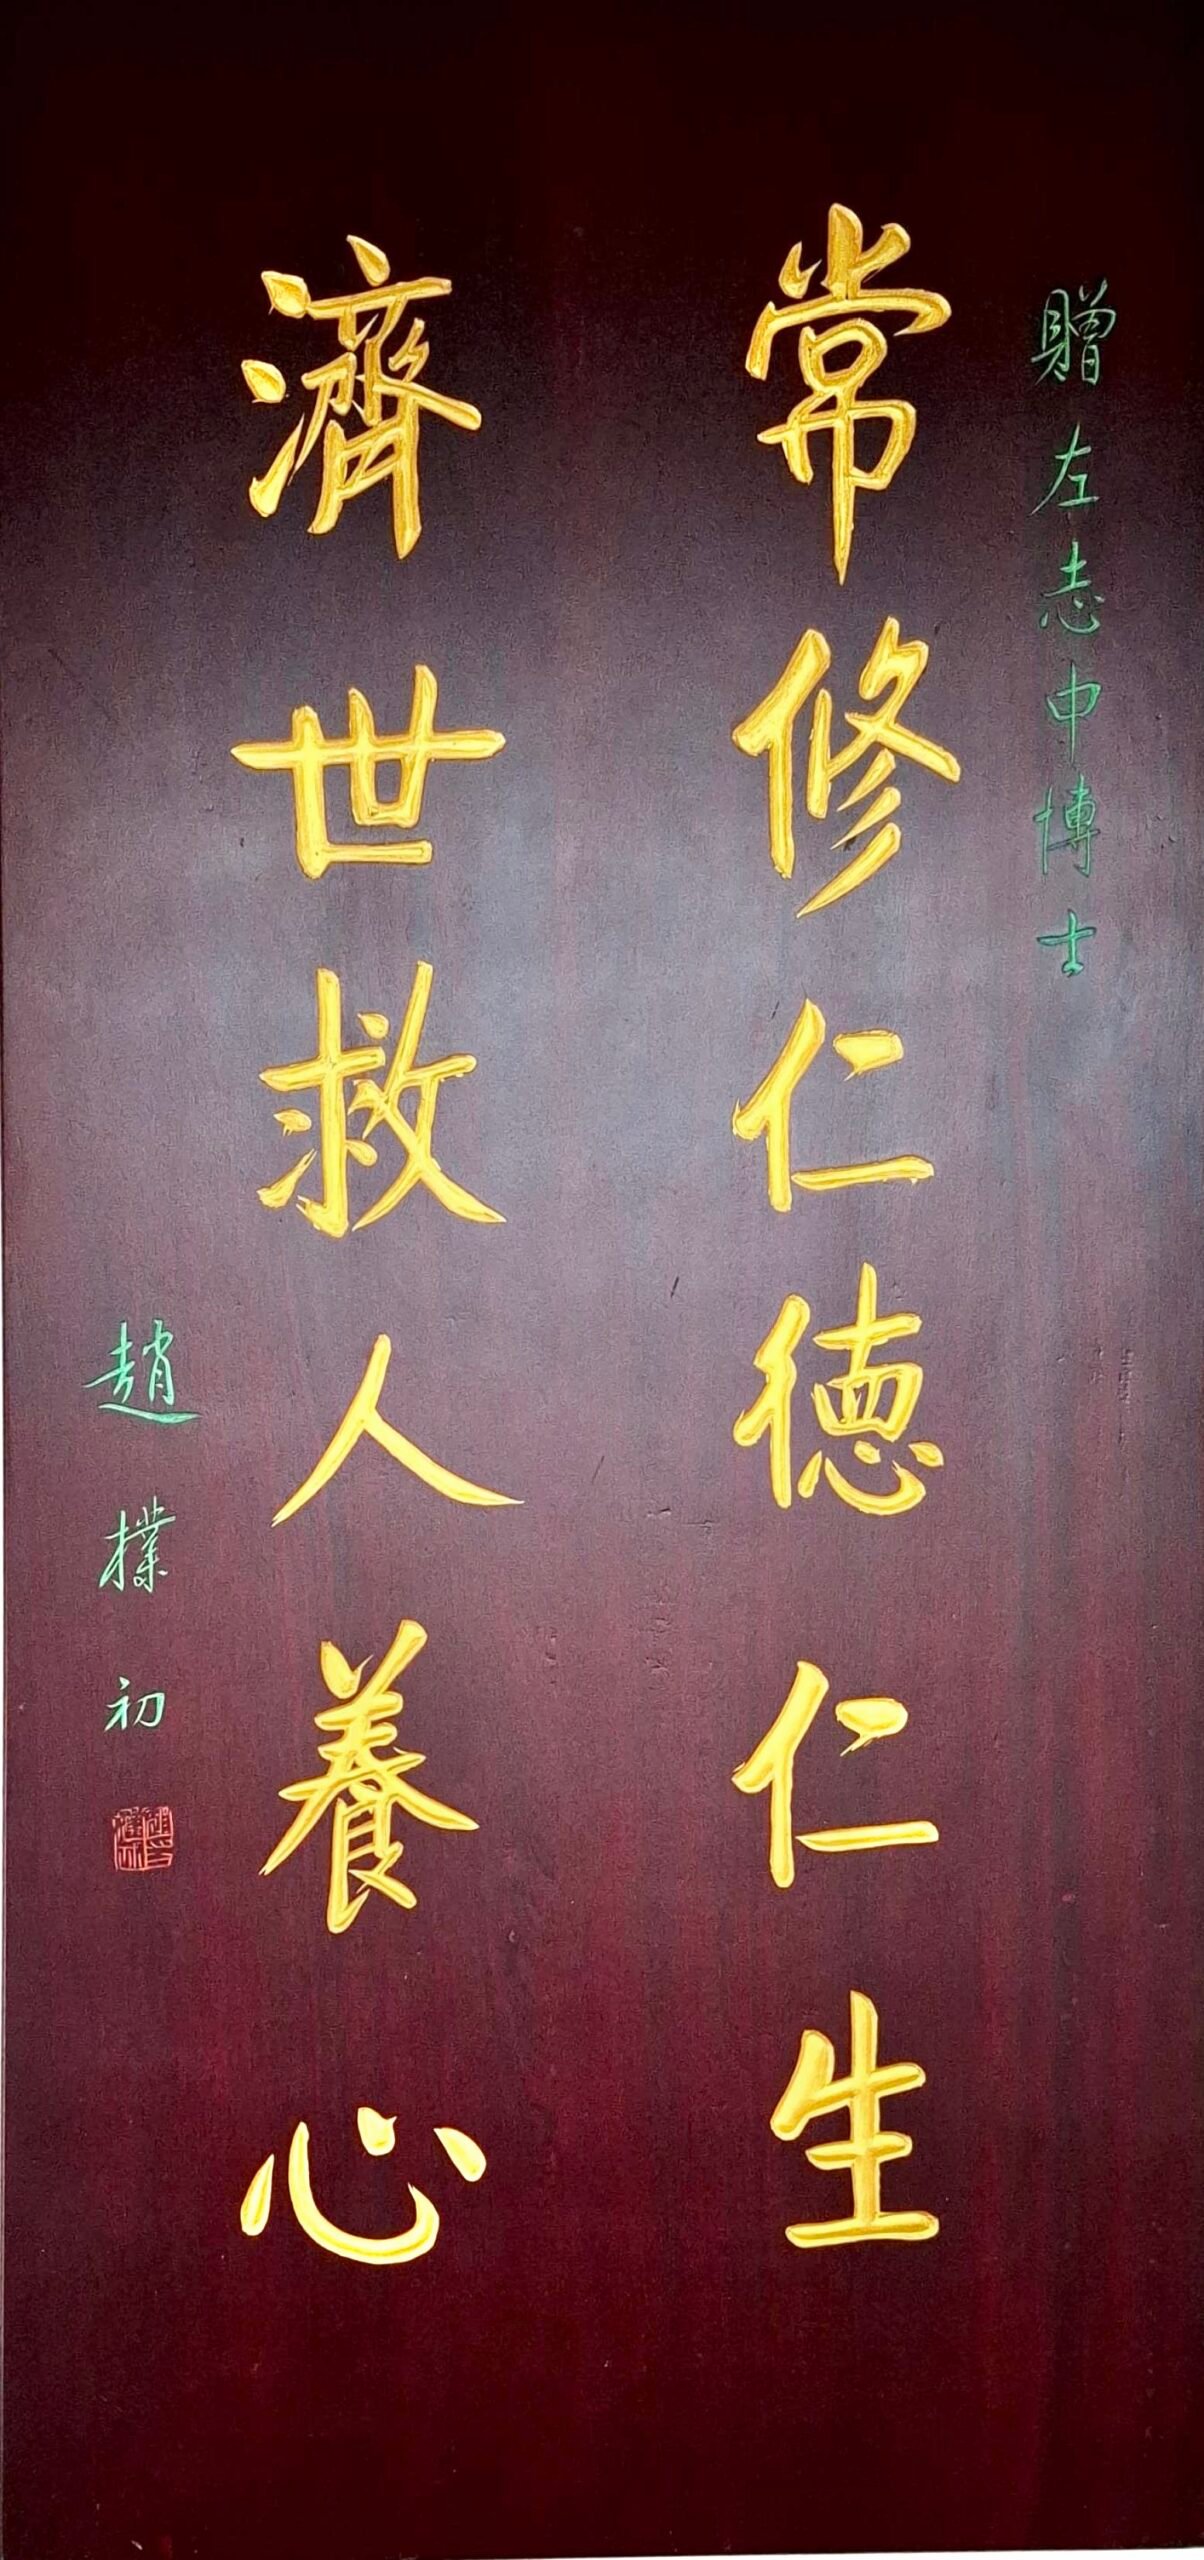 贈左志中博士
常修仁德仁生
濟世救人養心
趙樸初